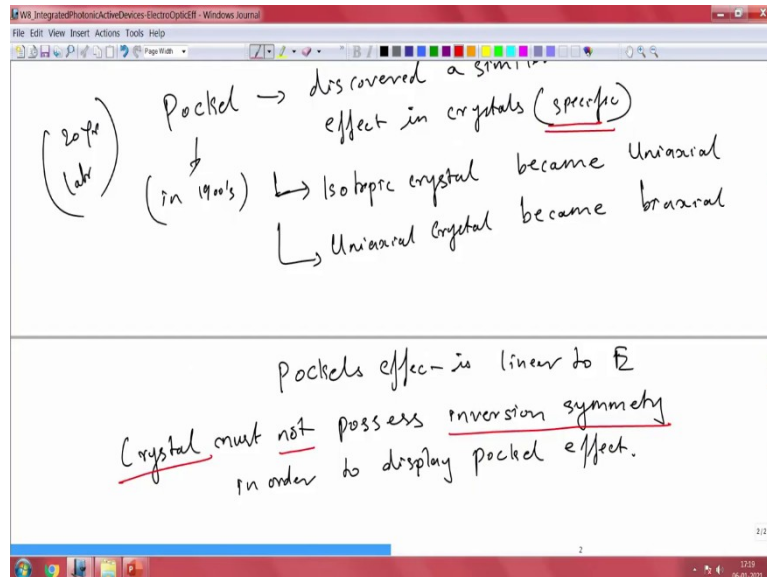 W8_IntegratedPhotonicActiveDevices-ElectroOpticEff - Windows Journal
File Edit View Insert Actions Tools Help
Page Width
discovered a simil
Pockel → effect in crystals (specific)
(20 yr
later)
(in 1900's) ↳ Isotopic crystal became Uniaxial
↳ Uniaxial Crystal became biaxial
Pockels effec- is linear to E
Crystal must not possess inversion symmety
in order to display pockel effect.
2/2
2
17:19
06-01-2021